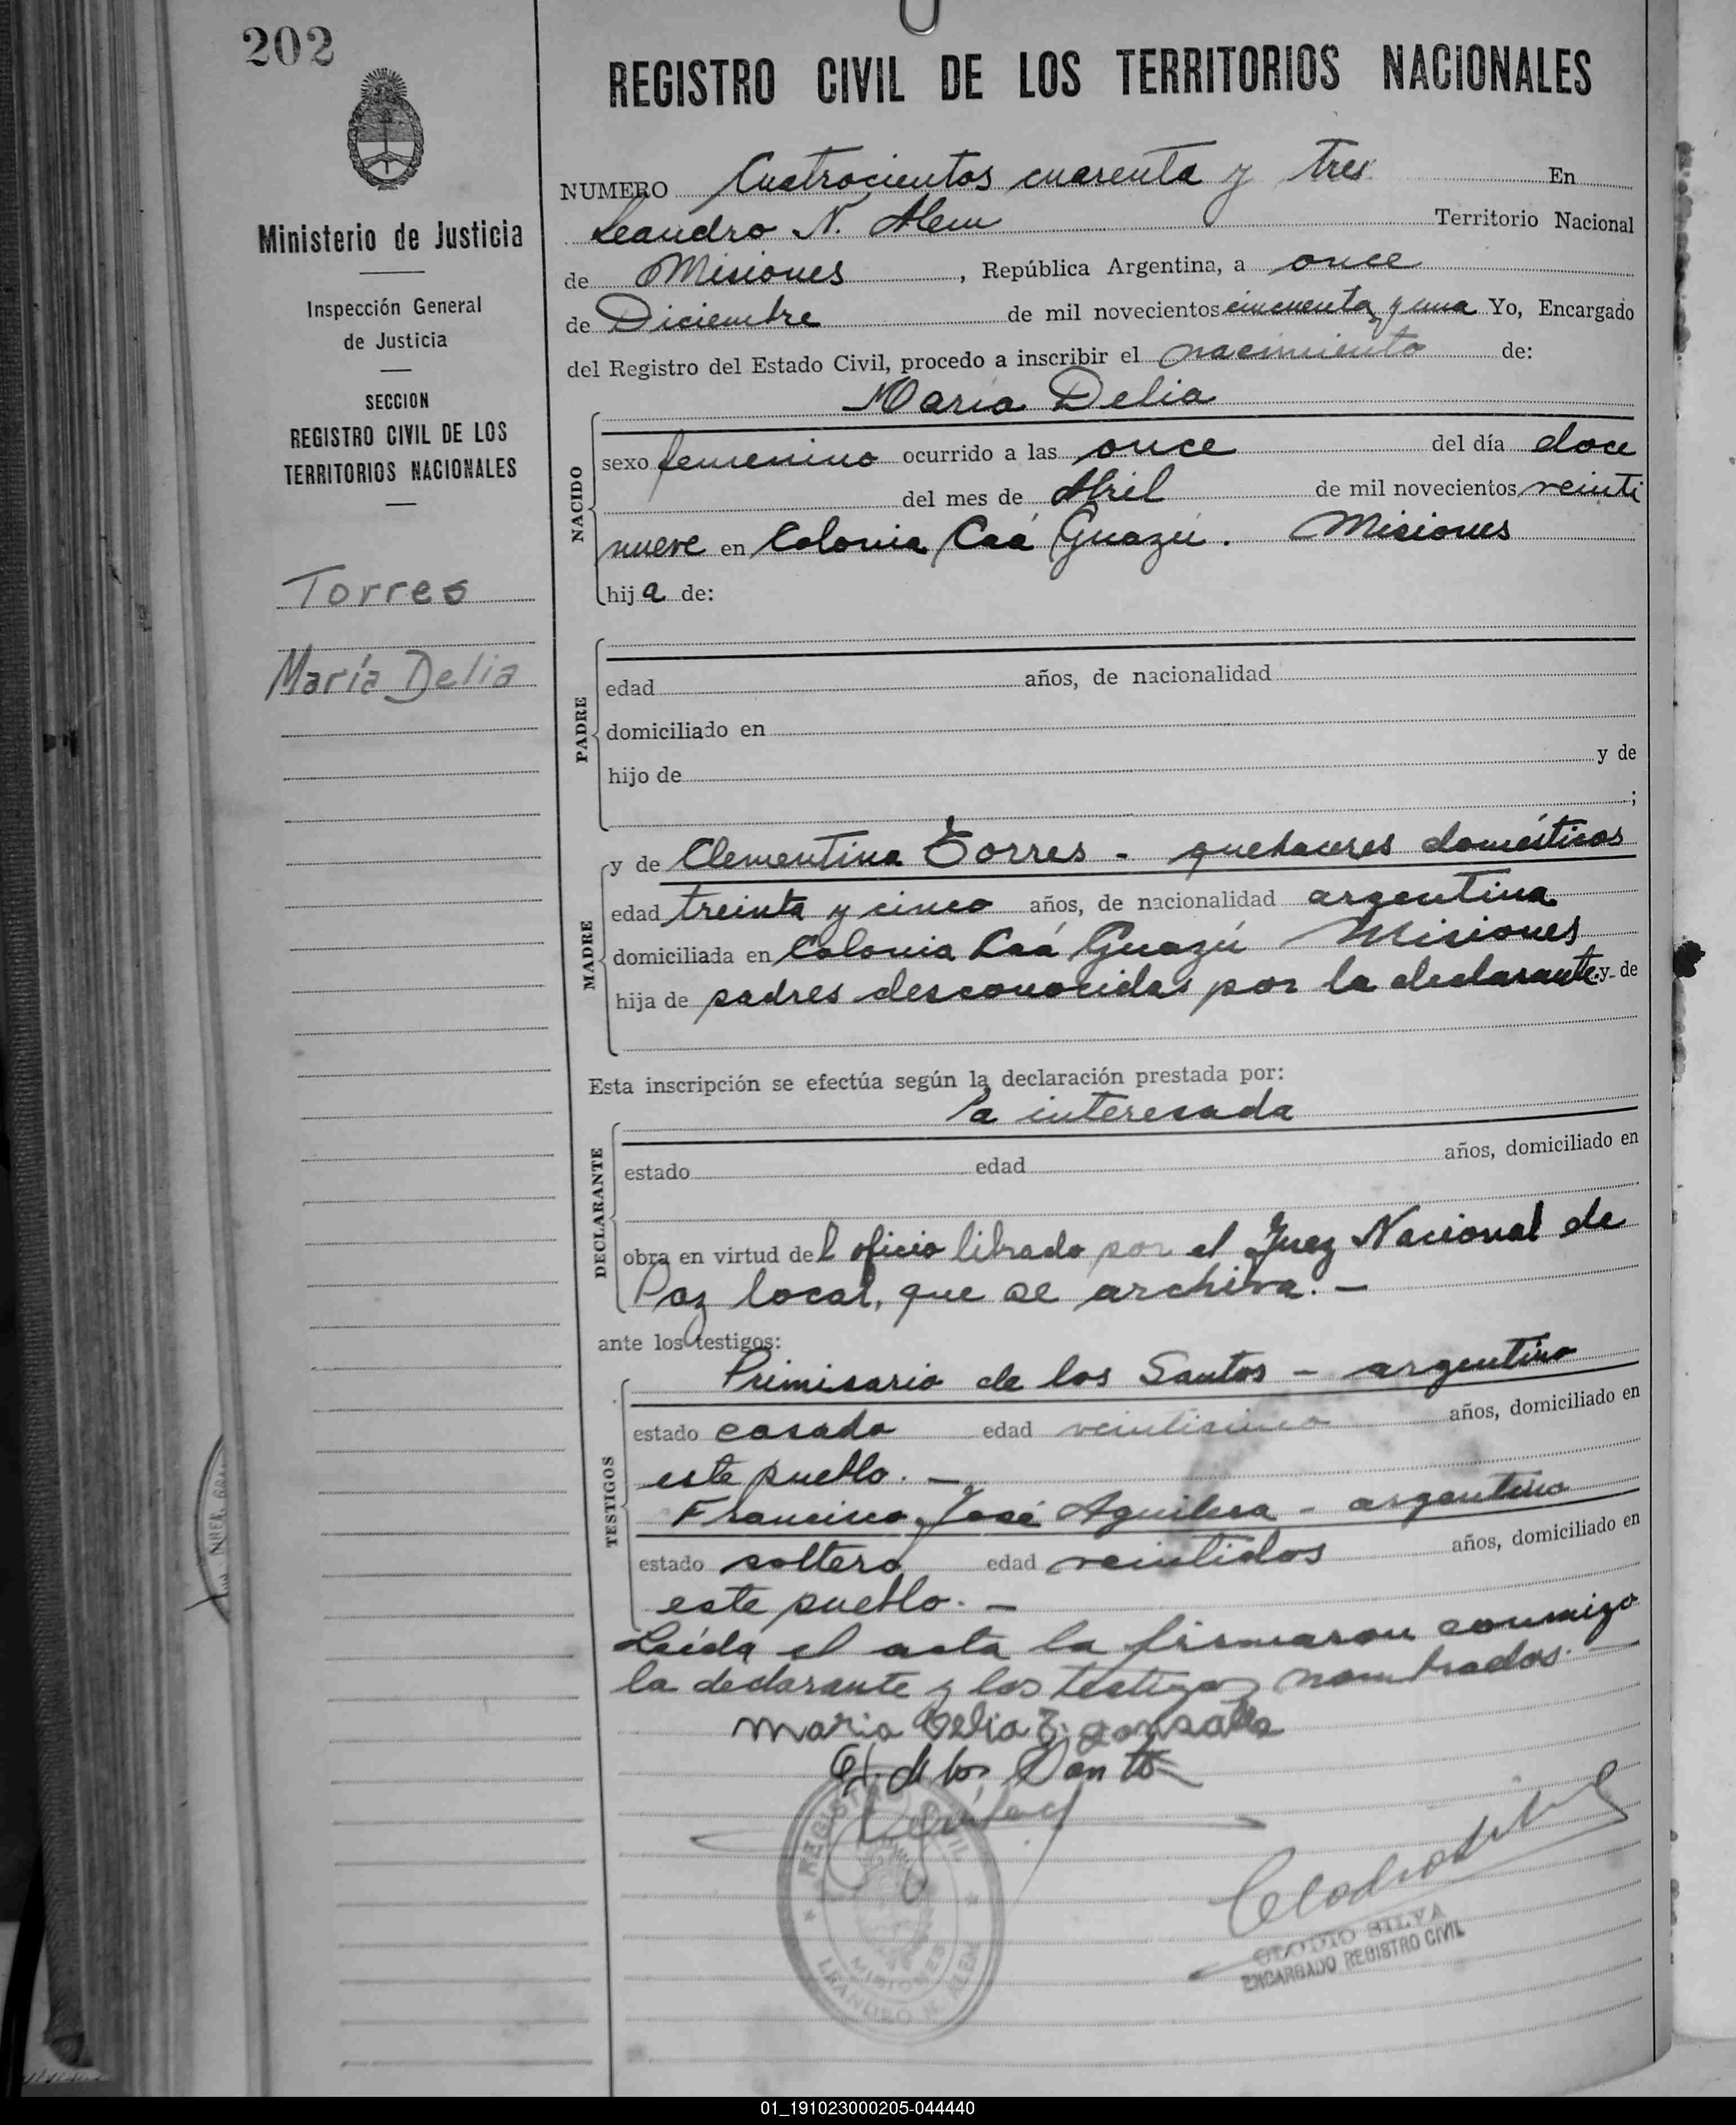 202
Ministerio de Justicia
Inspección General
de Justicia
SECCION
REGISTRO CIVIL DE LOS
TERRITORIOS NACIONALES
Torres
María Delia
REGISTRO CIVIL DE LOS TERRITORIOS NACIONALES
NUMERO Cuatrocientos cuarenta y tres En
Leandro N. Alem Territorio Nacional
de Misiones, República Argentina, a once
de Diciembre de mil novecientos cincuenta y uno Yo, Encargado
del Registro del Estado Civil, procedo a inscribir el nacimiento de:
María Delia
NACIDO
sexo femenino ocurrido a las once del día doce
del mes de Abril de mil novecientos veinti
nueve en Colonia Caá Guazú. Misiones
hija de:
PADRE
edad años, de nacionalidad
domiciliado en
hijo de y de
;
MADRE
y de Clementina Torres - quehaceres domésticos
edad treinta y cinco años, de nacionalidad argentina
domiciliada en Colonia Caá Guazú Misiones
hija de padres desconocidos por la declarante. y de
Esta inscripción se efectúa según la declaración prestada por:
la interesada
DECLARANTE
estado edad años, domiciliado en
obra en virtud del oficio librado por el Juez Nacional de
Paz local, que se archiva. -
ante los testigos:
TESTIGOS
Primisario de los Santos - argentino
estado casado edad veinticinco años, domiciliado en
este pueblo. -
Francisco José Aguilera - argentino
estado soltero edad veintidos años, domiciliado en
este pueblo. -
Leída el acta la firmaron conmigo
la declarante y los testigos nombrados. -
Maria Delia T. gonsales
de los Santos
REGISTRO CIVIL
MISIONES
LEANDRO N. ALEM
Clodio Silva
CLODIO SILVA
ENCARGADO REGISTRO CIVIL
01_191023000205-044440